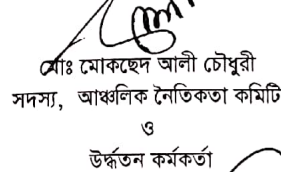 মোঃ মোকছেদ আলী চৌধুরী
সদস্য, আঞ্চলিক নৈতিকতা কমিটি
ও
উর্দ্ধতন কর্মকর্তা